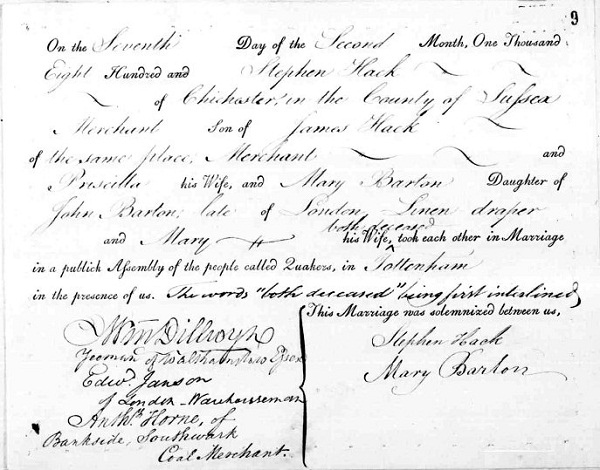 9
On the Seventh Day of the Second Month, One Thousand
Eight Hundred and Stephen Hack
of Chichester, in the County of Sussex
Merchant Son of James Hack
of the same place, Merchant and
Priscilla his Wife, and Mary Barton Daughter of
John Barton, late of London, Linen draper
both deceased
and Mary his Wife, took each other in Marriage
in a publick Assembly of the people called Quakers, in Tottenham
in the presence of us. The words "both deceased" being first interlined
This Marriage was solemnized between us,
Stephen Hack
Mary Barton
Wm Dillwyn
Yeoman of Walthamstow Essex
Edwd. Janson
of London - Warehouseman
Anthy. Horne, of
Bankside, Southwark
Coal Merchant.